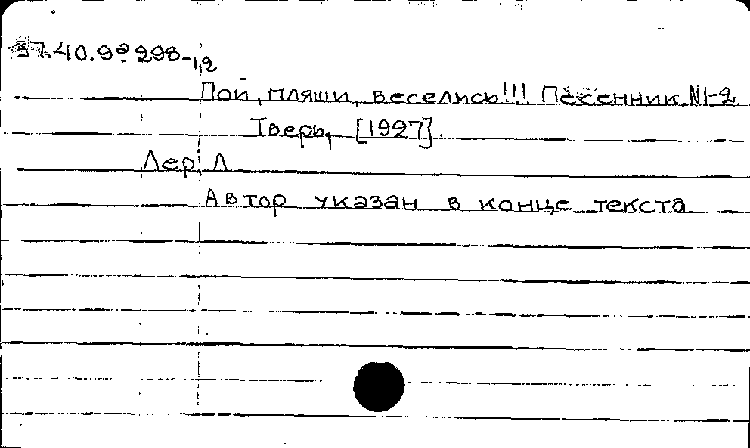 37.40.9ª 298-1,2
Пой, пляши, веселись!!! Песенник №1-2
Тверь, [1927]
Лер, Л
Автор указан в конце текста